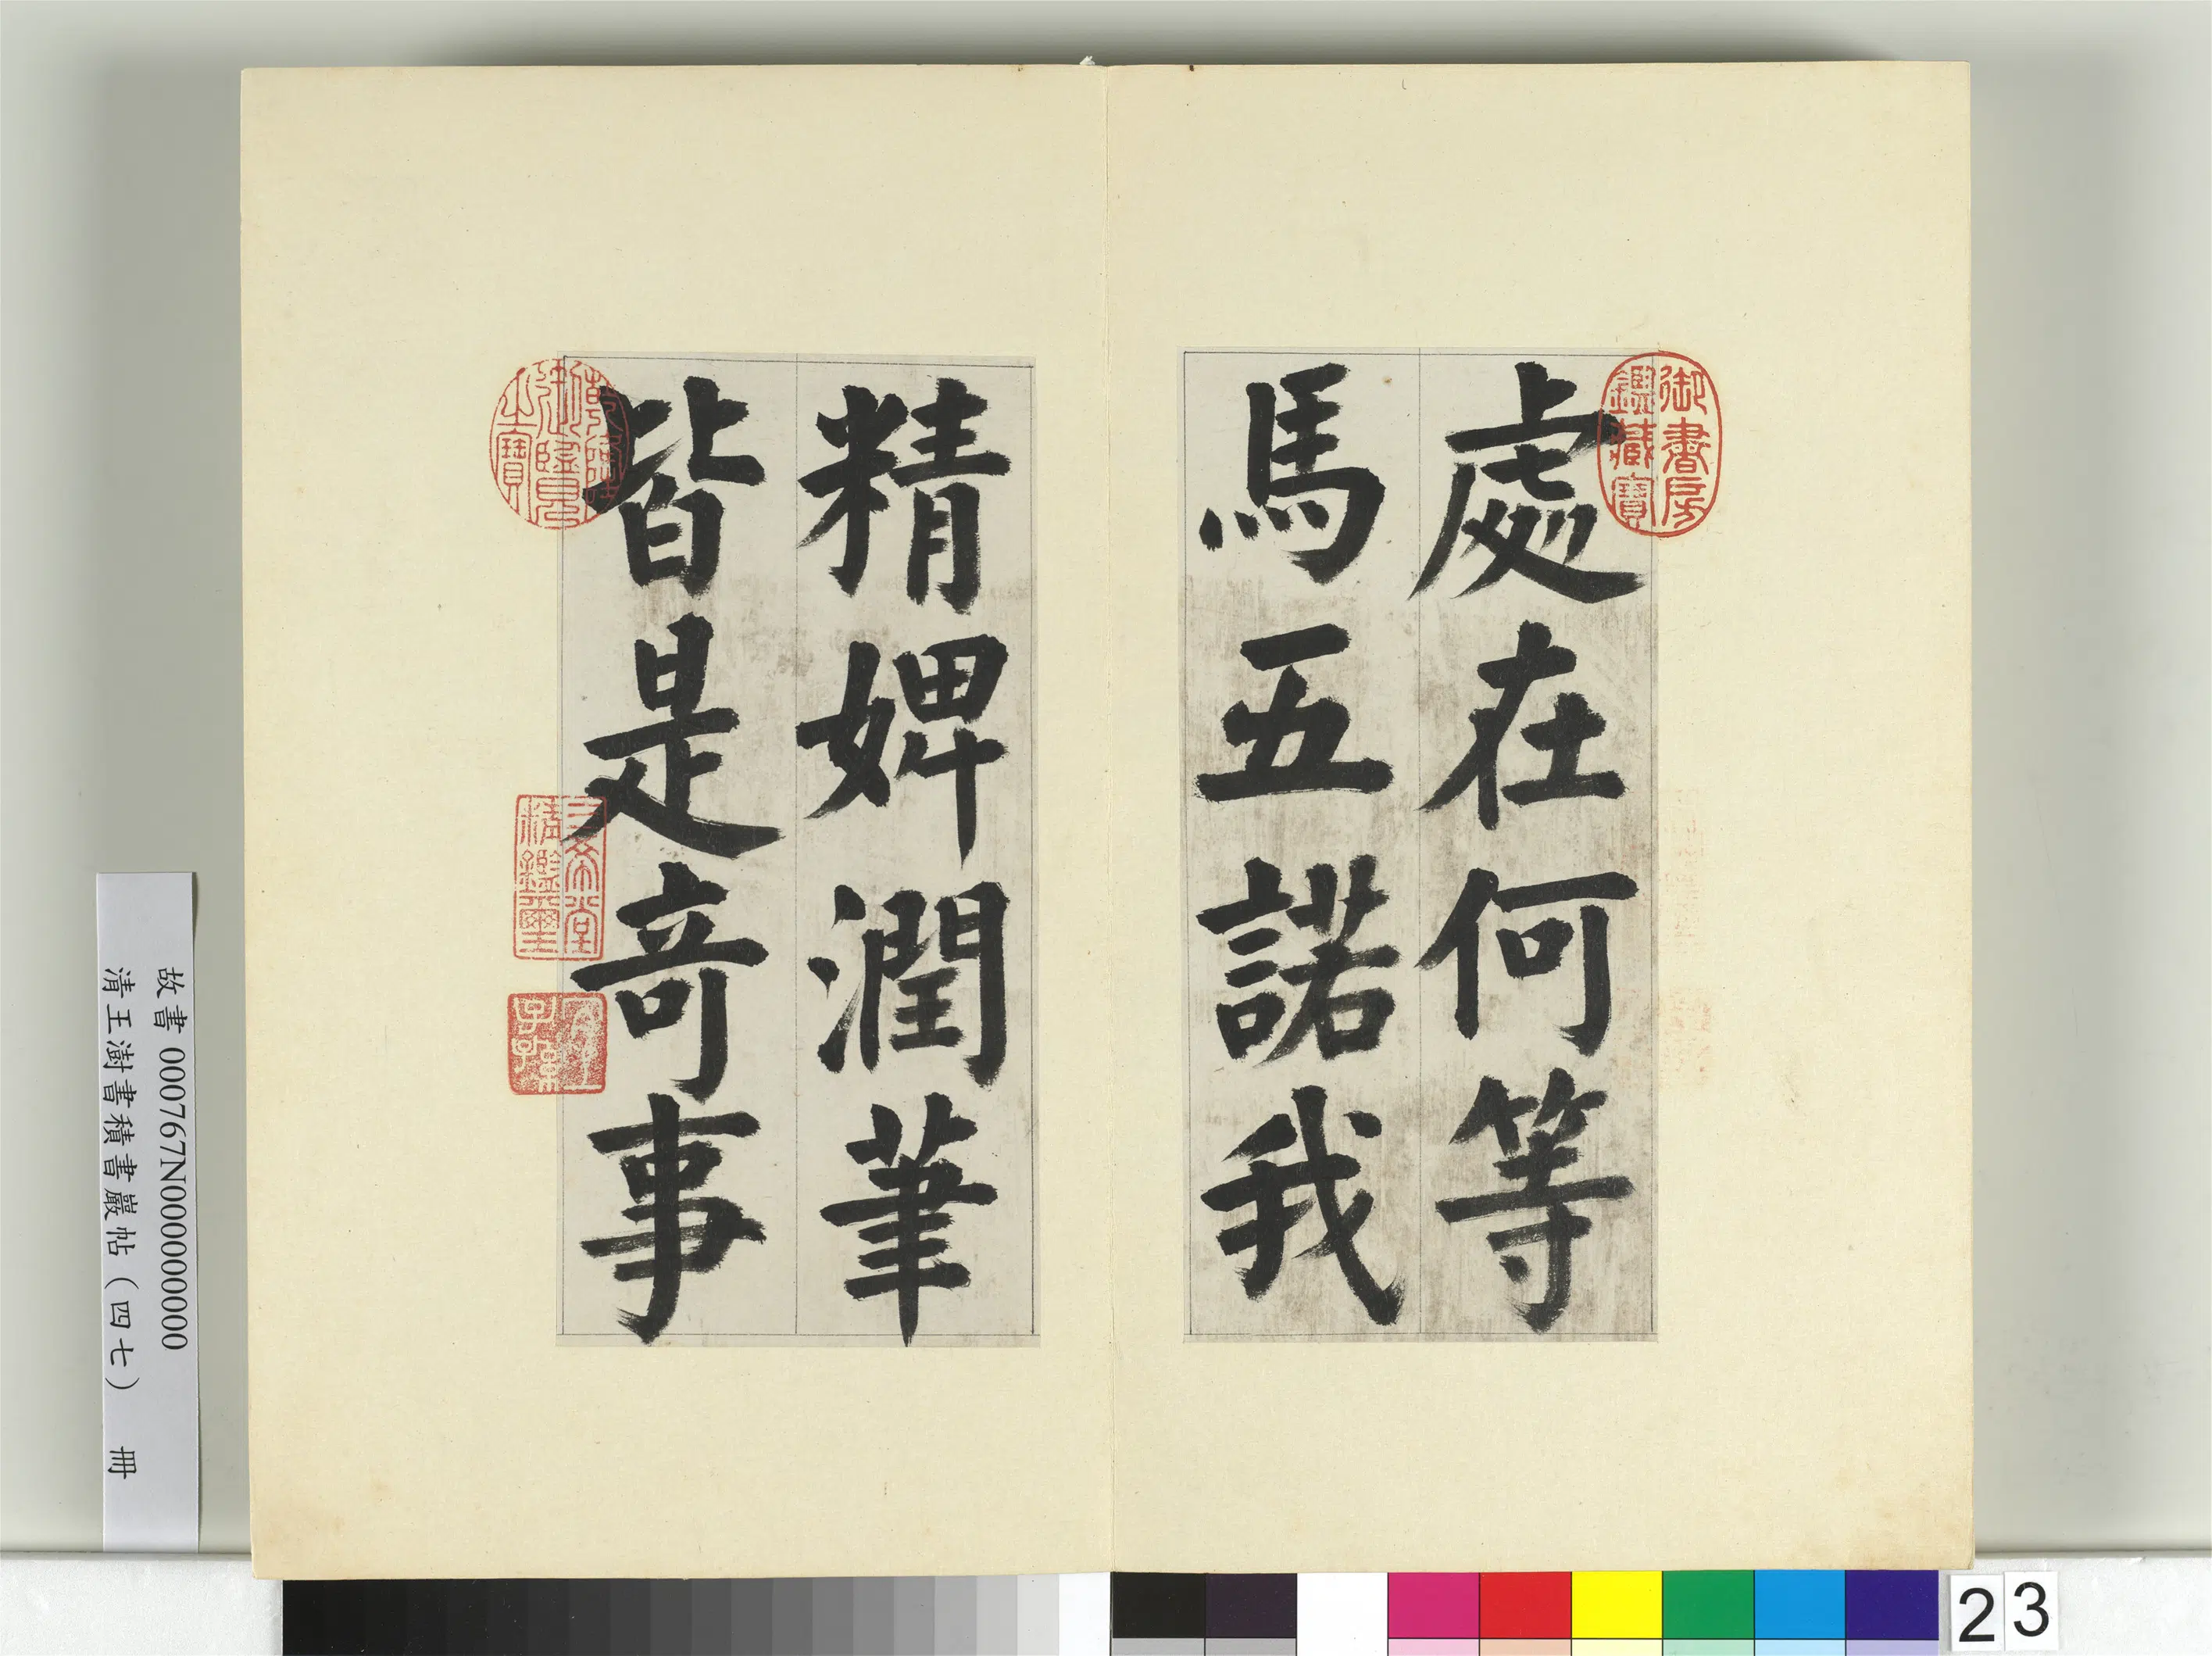 處在何等
馬五諾我
精婢潤筆
皆是奇事
御書房
鑑藏寶
乾隆
御覽
之寶
三希堂
精鑑璽
宜
子孫
故書 000767N000000000
清王澍書積書巖帖（四七） 冊
23